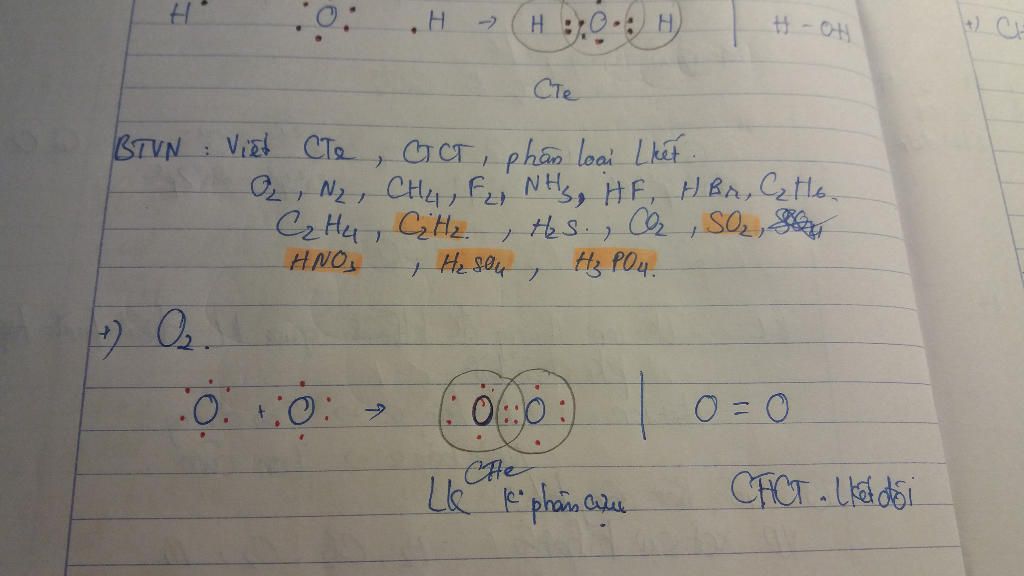 H O H → H O H | H - OH
CTe
BTVN : Viết CTe, CTCT, phân loại Lkết.
O2, N2, CH4, F2, NH3, HF, HBr, C2H6.
C2H4, C2H2., H2S., CO2, SO2,
HNO3, H2SO4, H3PO4.
+) O2.
O + O → O O | O = O
CTe
Lk K° phân cực CTCT. Lkết đôi